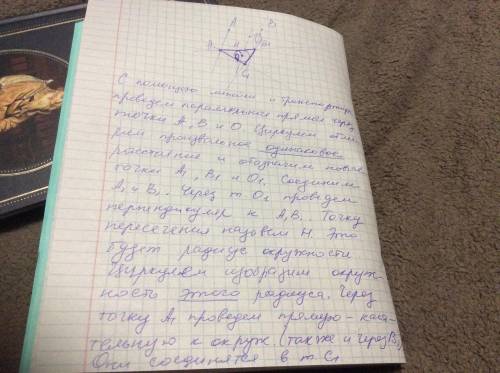 A B
A₁ H B₁
O₁
C₁
С помощью линейки и транспортира
проведем параллельные прямые через
точки А, В и О. Циркулем отме
рем произвольное одинаковое
расстояние и обозначим новые
точки А₁, В₁ и О₁. Соединим
А₁ и В₁. Через т. О₁ проведем
перпендикуляр к А₁В₁. Точку
пересечения назовем Н. Это
будет радиус окружности
Циркулем изобразим окруж-
ность этого радиуса. Через
точку А₁ проведем прямую - каса-
тельную к окруж. (так же и через В₁)
Они соединятся в т. С₁